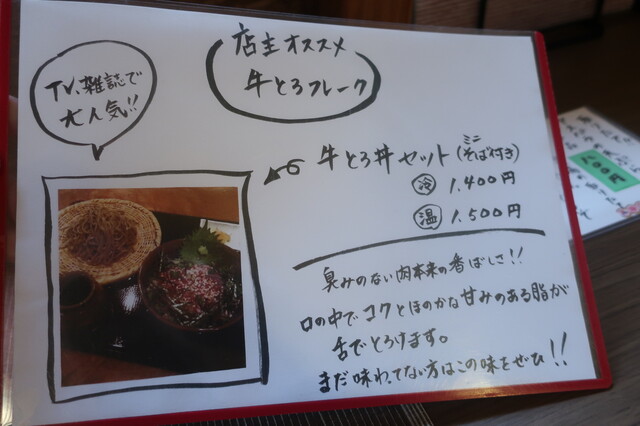 TV、雑誌で
大人気!!
店主オススメ
牛とろフレーク
牛とろ丼セット(ミニそば付き)
冷 1.400円
温 1.500円
臭みのない肉本来の香ばしさ!!
口の中でコクとほのかな甘みのある脂が
舌でとろけます。
まだ味わってない方はこの味をぜひ!!